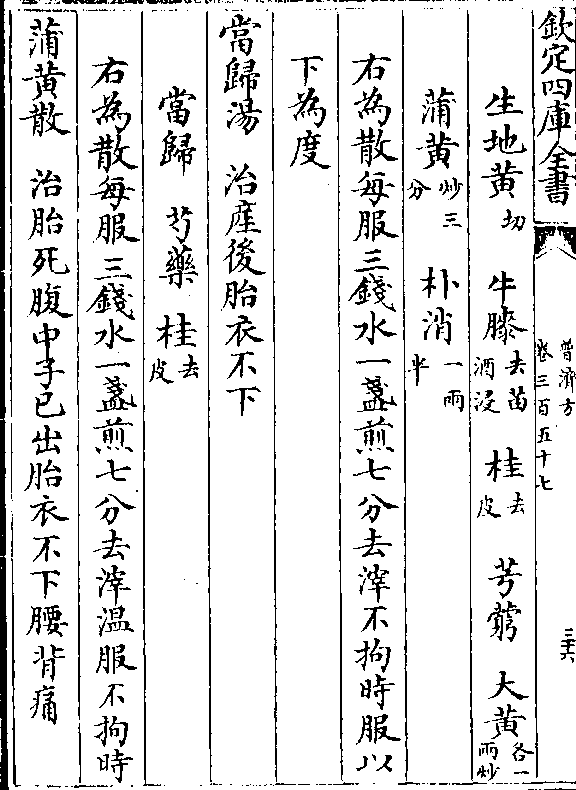 欽定四庫全書
普濟方
卷三百五十七
三十六
生地黄切 牛膝去苗酒浸 桂去皮 芎藭 大黄各一兩炒
蒲黄炒三分 朴消一兩半
右為散每服三錢水一盞煎七分去滓不拘時服以
下為度
當歸湯 治産後胎衣不下
當歸 芍藥 桂去皮
右為散每服三錢水一盞煎七分去滓温服不拘時
蒲黄散 治胎死腹中子已出胎衣不下腰背痛